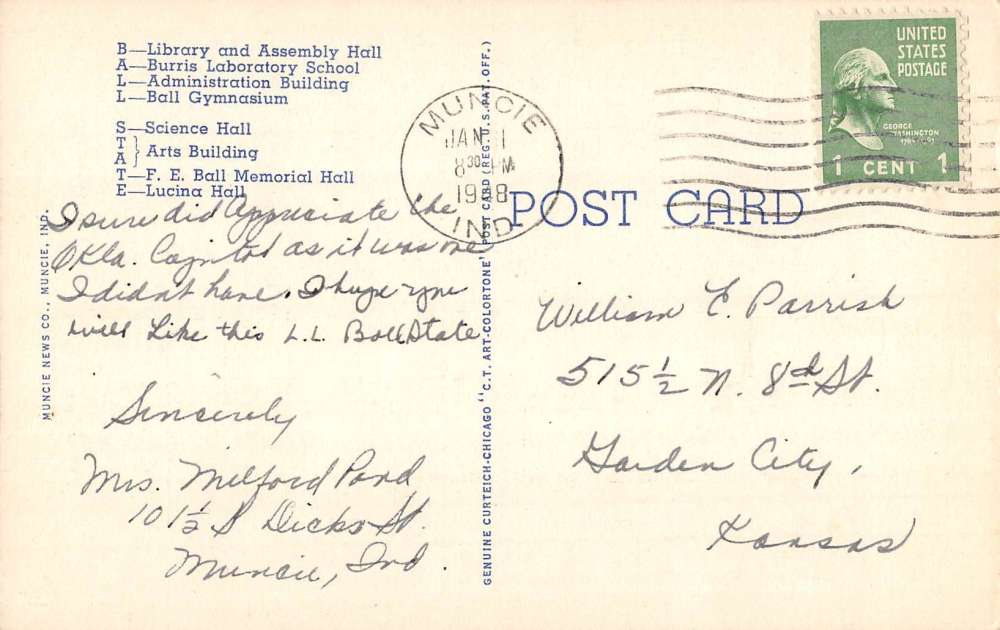 B—Library and Assembly Hall
A—Burris Laboratory School
L—Administration Building
L—Ball Gymnasium
S—Science Hall
T
A } Arts Building
T—F. E. Ball Memorial Hall
E—Lucina Hall
I sure did Appreciate the
Okla. Capitol as it was one
I didn't have. I hope you
will Like this L.L. Ball State
Sincerely
Mrs. Milford Pond
10 1/2 S Dicks St.
Muncie, Ind.
MUNCIE NEWS CO., MUNCIE, IND.
GENUINE CURTEICH-CHICAGO "C.T. ART-COLORTONE" POST CARD (REG. U.S. PAT. OFF.)
MUNCIE
JAN 1
8 30 PM
IND
UNITED
STATES
POSTAGE
GEORGE
WASHINGTON
1 CENT 1
POST CARD
William E. Parrish
515 1/2 N. 8th St.
Garden City,
Kansas